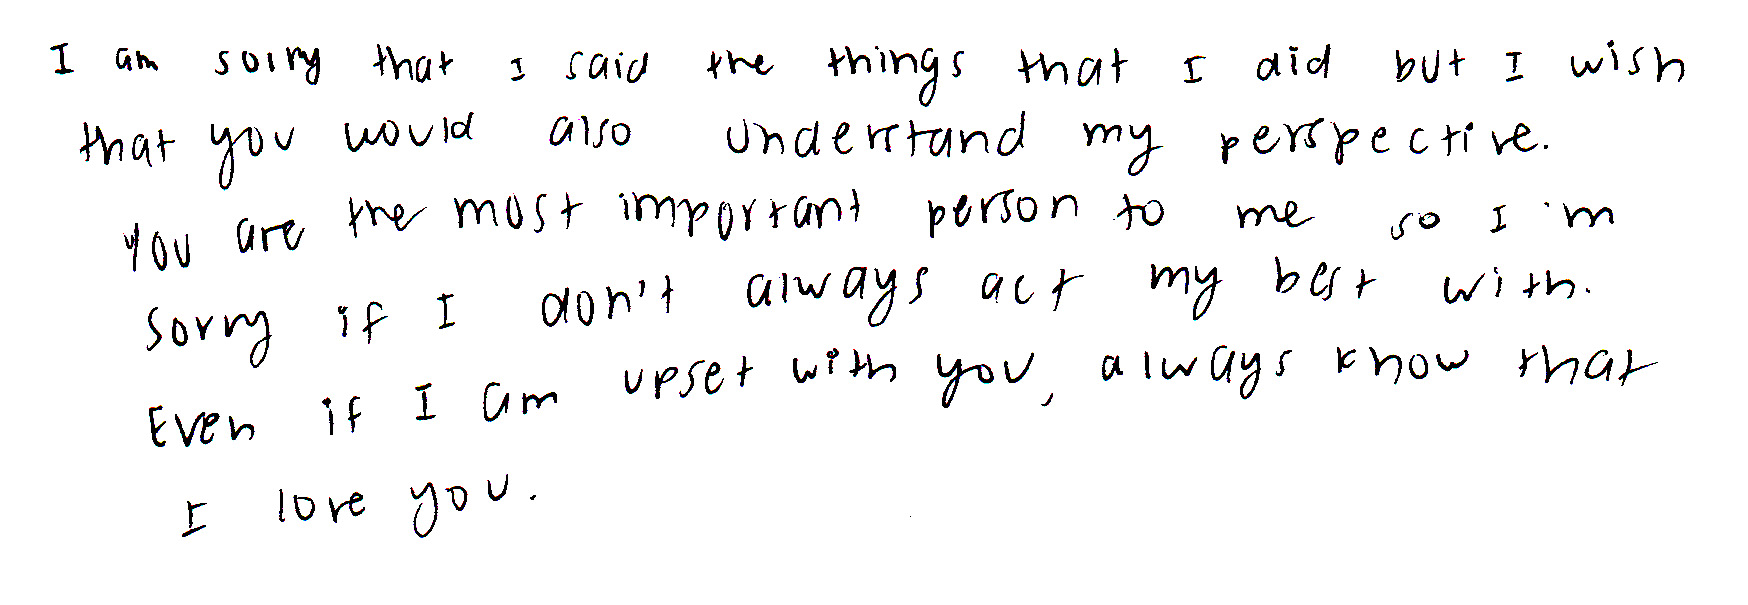 I am sorry that I said the things that I did but I wish
that you would also understand my perspective.
You are the most important person to me so I'm
sorry if I don't always act my best with.
Even if I am upset with you, always know that
I love you.